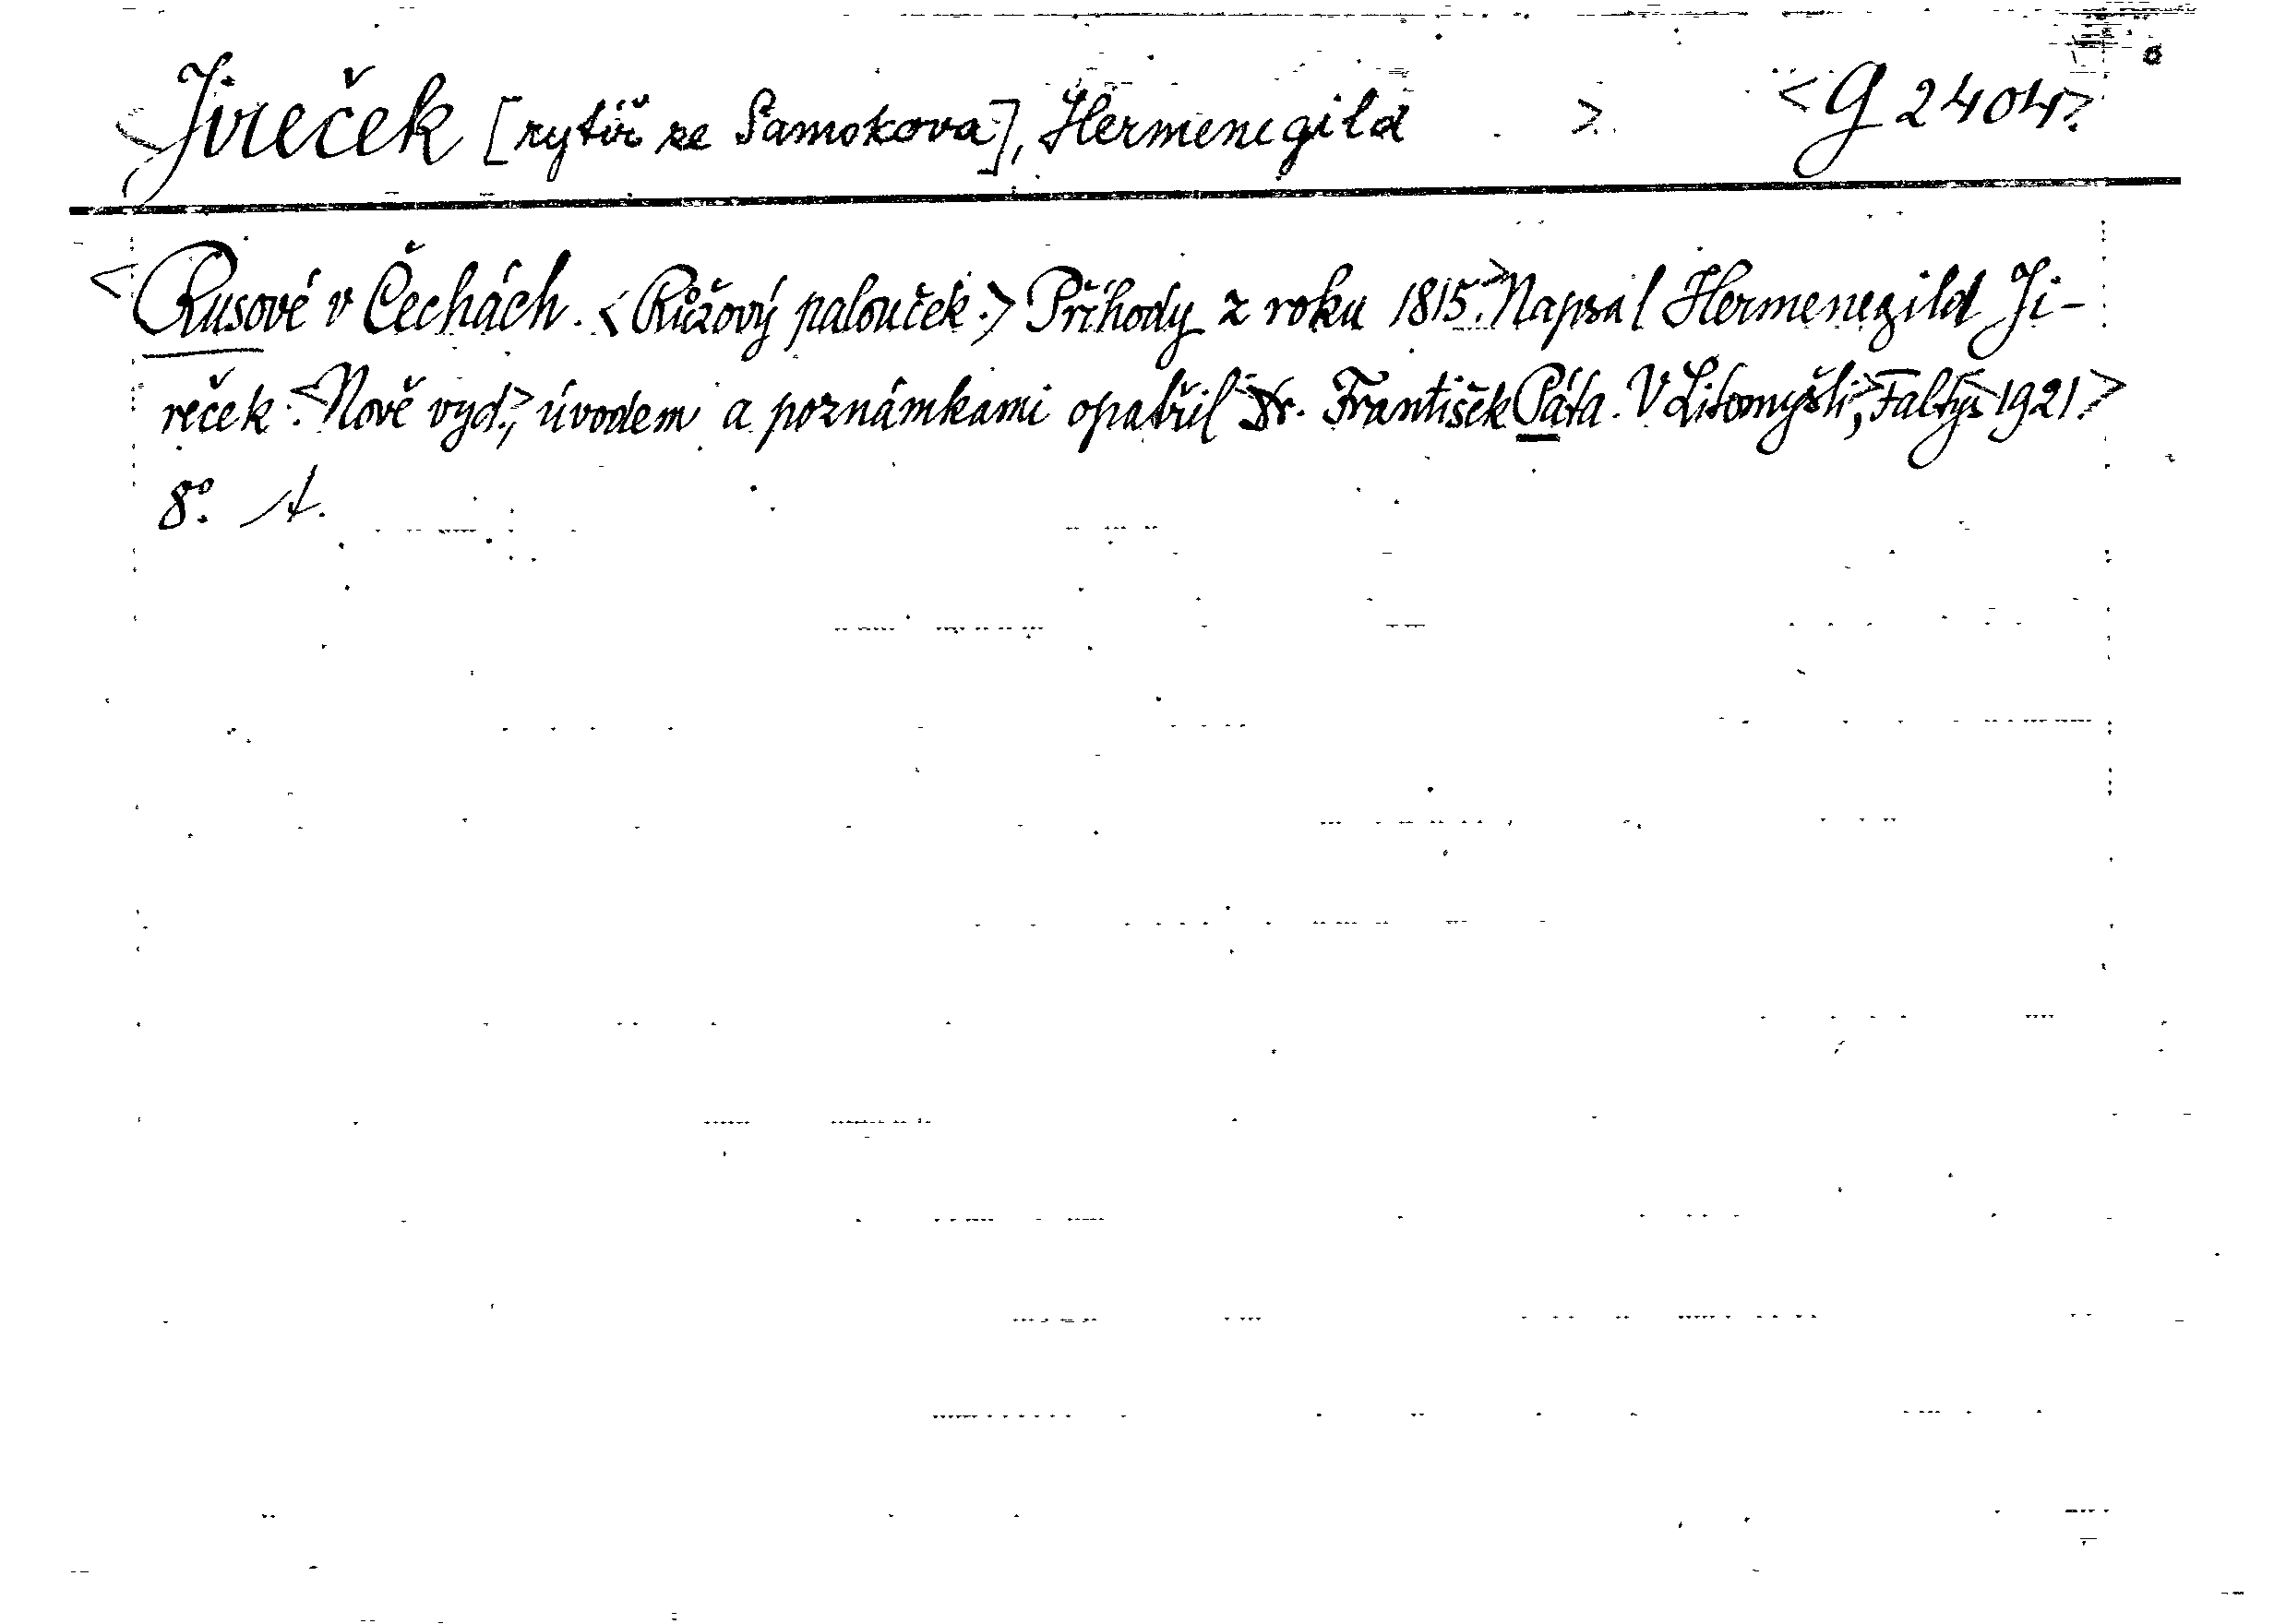 <Jireček [rytíř ze Samokova], Hermenegild > <G 2404>
<Rusové v Čechách. <Růžový palouček.> Příhody z roku 1815.> Napsal Hermenegild Ji-
reček. <Nově vyd.,> úvodem a poznámkami opatřil Dr. František Páta. V Litomyšli,> Faltys 1921.>
8°. A.